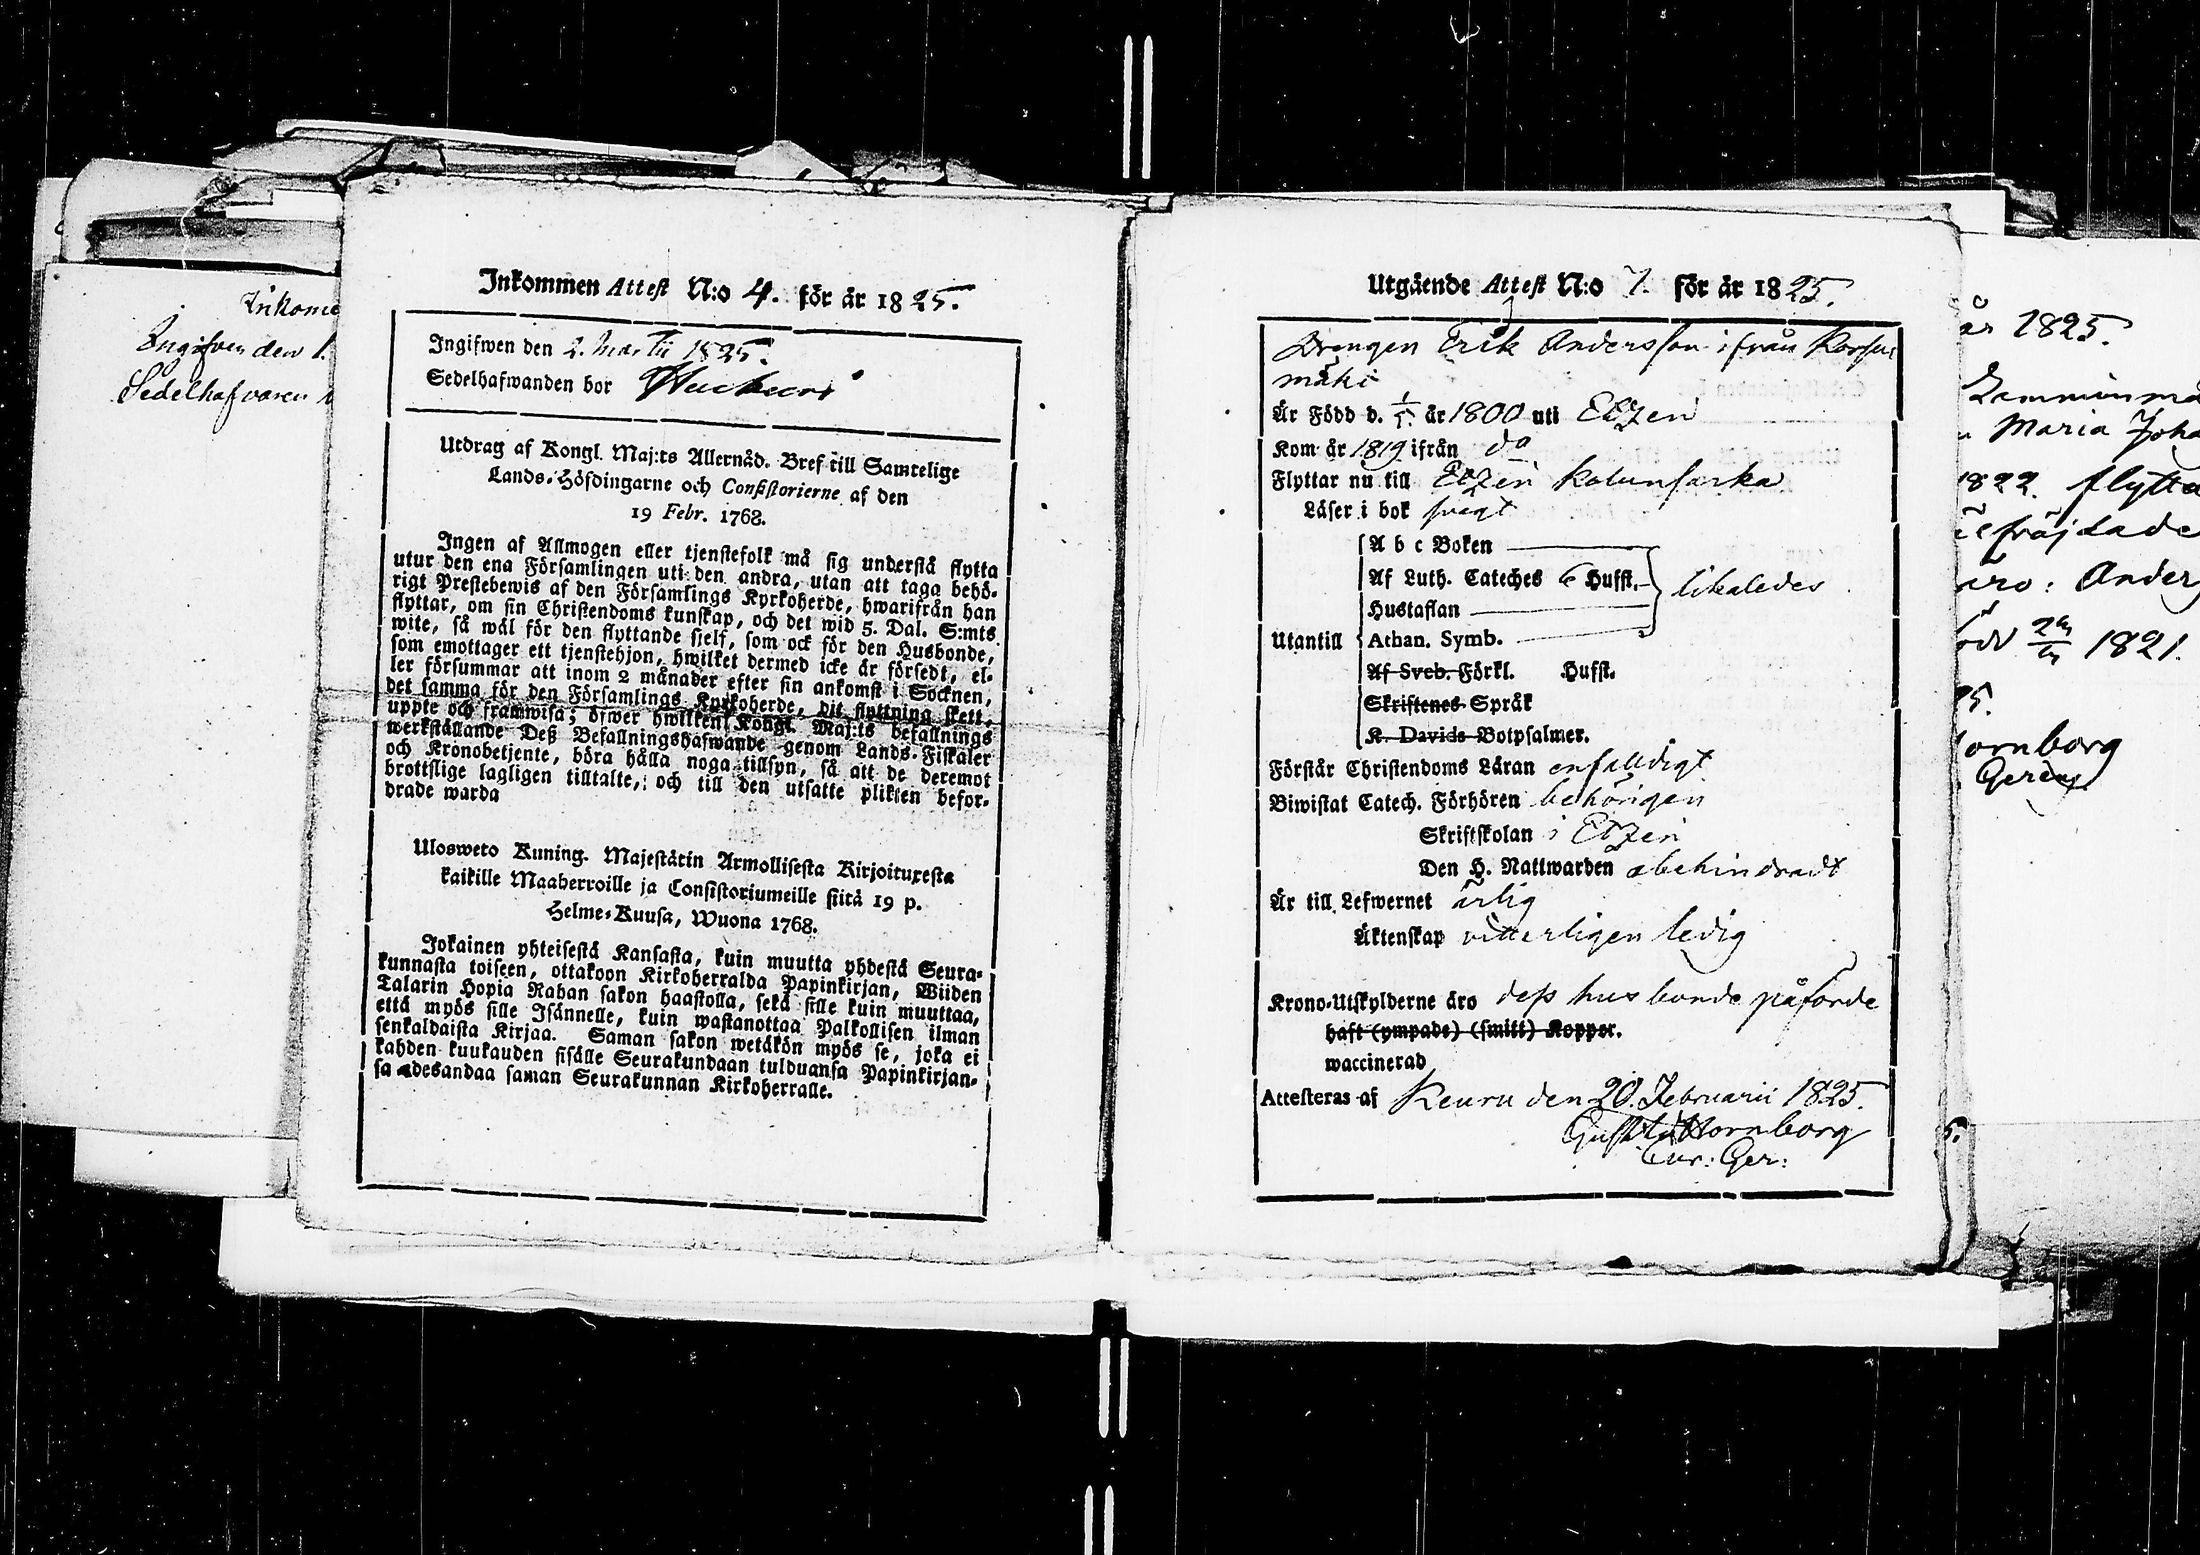 Inkomm
Ingifven den 1.
Sedelhafvaren
Inkommen Attest N:o 4. för år 1825.
Ingifwen den 2. Martii 1825.
Sedelhafwanden bor
Utdrag af Kongl. Maj:ts Allernåd. Bref till Samtelige
Lands-Höfdingarne och Consistorierne af den
19 Febr. 1768.
Ingen af Allmogen eller tjenstefolk må sig understå flytta
utur den ena Församlingen uti den andra, utan att taga behö-
rigt Prestebewis af den Församlings Kyrkoherde, hwarifrån han
flyttar, om sin Christendoms kunskap, och det wid 5. Dal. S:mts
wite, så wäl för den flyttande sielf, som ock för den Husbonde,
som emottager ett tjenstehjon, hwilket dermed icke är försedt, el-
ler försummar att inom 2 månader efter sin ankomst i Socknen,
det samma för den Församlings Kyrkoherde, dit flyttning skett,
uppte och framwisa; öfwer hwilken Kongl. Maj:ts befallnings
werkställande Deß Befallningshafwande genom Lands-Fiskaler
och Kronobetjente, böra hålla noga tillsyn, så att de deremot
brottslige lagligen tilltalte, och till den utsatte plikten befor-
drade warda
Ulosweto Kuning. Majestätin Armollisesta Kirjoituxesta
kaikille Maaherroille ja Consistoriumeille siitä 19 p.
Helme-Kuusa, Wuona 1768.
Jokainen yhteisestä Kansasta, kuin muutta yhdestä Seura-
kunnasta toiseen, ottakoon Kirkoherralda Papinkirjan, Wiiden
Talarin Hopia Rahan sakon haastolla, sekä sille kuin muuttaa,
että myös sille Isännelle, kuin wastanottaa Palkollisen ilman
senkaldaista Kirjaa. Saman sakon wetäkön myös se, joka ei
kahden kuukauden sisälle Seurakundaan tulduansa Papinkirjan-
sa edesandaa saman Seurakunnan Kirkoherralle.
Utgående Attest N:o 7. för år 1825.
Drengen Erik Andersson ifrån Korsu
mäki
Är Född d. 1/5. år 1800 uti Etzeri
Kom år 1819 ifrån do
Flyttar nu till Etzeri Kolunsarka
Läser i bok svagt
A b c Boken
Af Luth. Cateches 6 Hufst. likaledes
Hustaflan
Utantill Athan. Symb.
Af Sveb. Förkl. Hufst.
Skriftenes Språk
K. Davids Botpsalmer.
Förstår Christendoms Läran enfalldigt
Biwistat Catech. Förhören behörigen
Skriftskolan i Etzeri
Den H. Nattwarden obehindradt
Är till Lefwernet ärlig
Äktenskap vitterligen ledig
Krono-Utskylderne äro dess husbonde påförde
haft (ympade) (smitt) Koppor.
waccinerad
Attesteras af Keuru den 20. Februarii 1825.
Hornborg
Cur: Ger:
år 1825.
Maria Joha
1822. flytta
fräjdade
äro: Ander
1821.
25.
ornborg
Gerens
5.